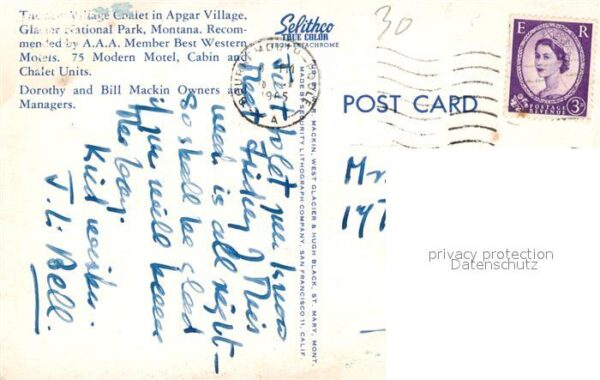 The New Village Chalet in Apgar Village,
Glacier National Park, Montana. Recom-
mended by A.A.A. Member Best Western
Motels. 75 Modern Motel, Cabin and
Chalet Units.
Dorothy and Bill Mackin Owners and
Managers.
Selithco
TRUE COLOR
FROM EKTACHROME
30
E R
POSTAGE
REVENUE
3D
1965
A
POST CARD
MACKIN, WEST GLACIER & HUGH BLACK, ST. MARY, MONT.
MADE BY SECURITY LITHOGRAPH COMPANY, SAN FRANCISCO 11, CALIF.
Just to let you know
that Friday of this
week is all right -
so shall be glad
if you will
Kind wishes.
J. L. Bell.
privacy protection
Datenschutz